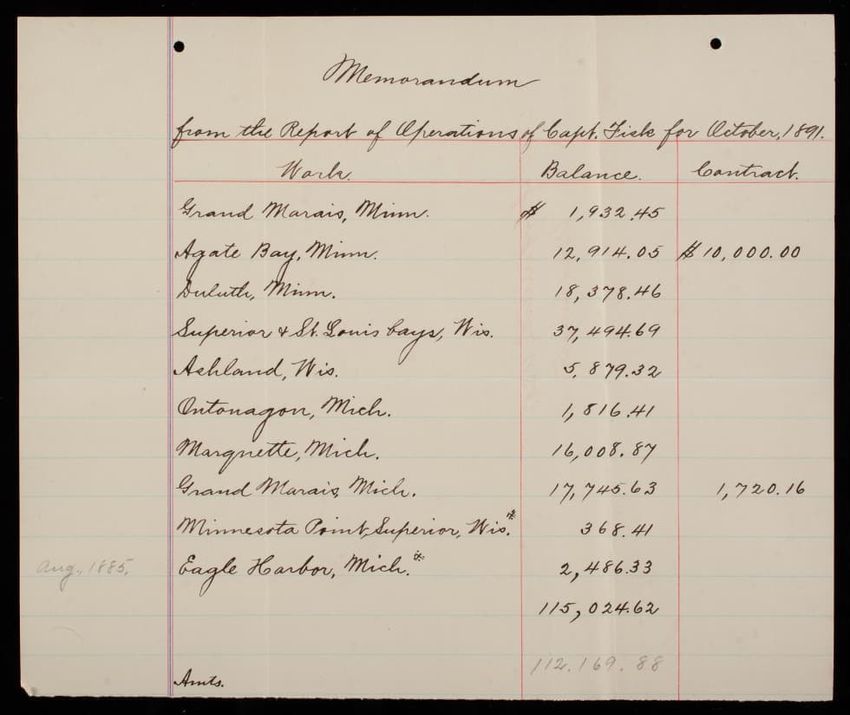 Memorandum
from the Report of Operations of Capt. Fisk for October, 1891.
Work. Balance. Contract.
Grand Marais, Minn. $ 1,932.45
Agate Bay, Minn. 12,914.05 $10,000.00
Duluth, Minn. 18,378.46
Superior & St. Louis bays, Wis. 37,494.69
Ashland, Wis. 5,879.32
Ontonagon, Mich. 1,816.41
Marquette, Mich. 16,008.87
Grand Marais, Mich. 17,745.63 1,720.16
Minnesota Point, Superior, Wis.* 368.41
Aug., 1885. Eagle Harbor, Mich.* 2,486.33
115,024.62
112.169.88
Amts.